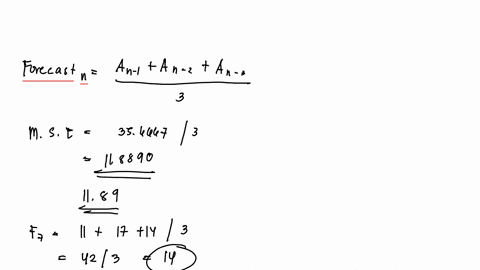 Forecast n = A n-1 + A n-2 + A n-3
3
M.S.E = 35.6667 / 3
= 11.8890
11.89
F7 = 11 + 17 + 14 / 3
= 42 / 3 = 14